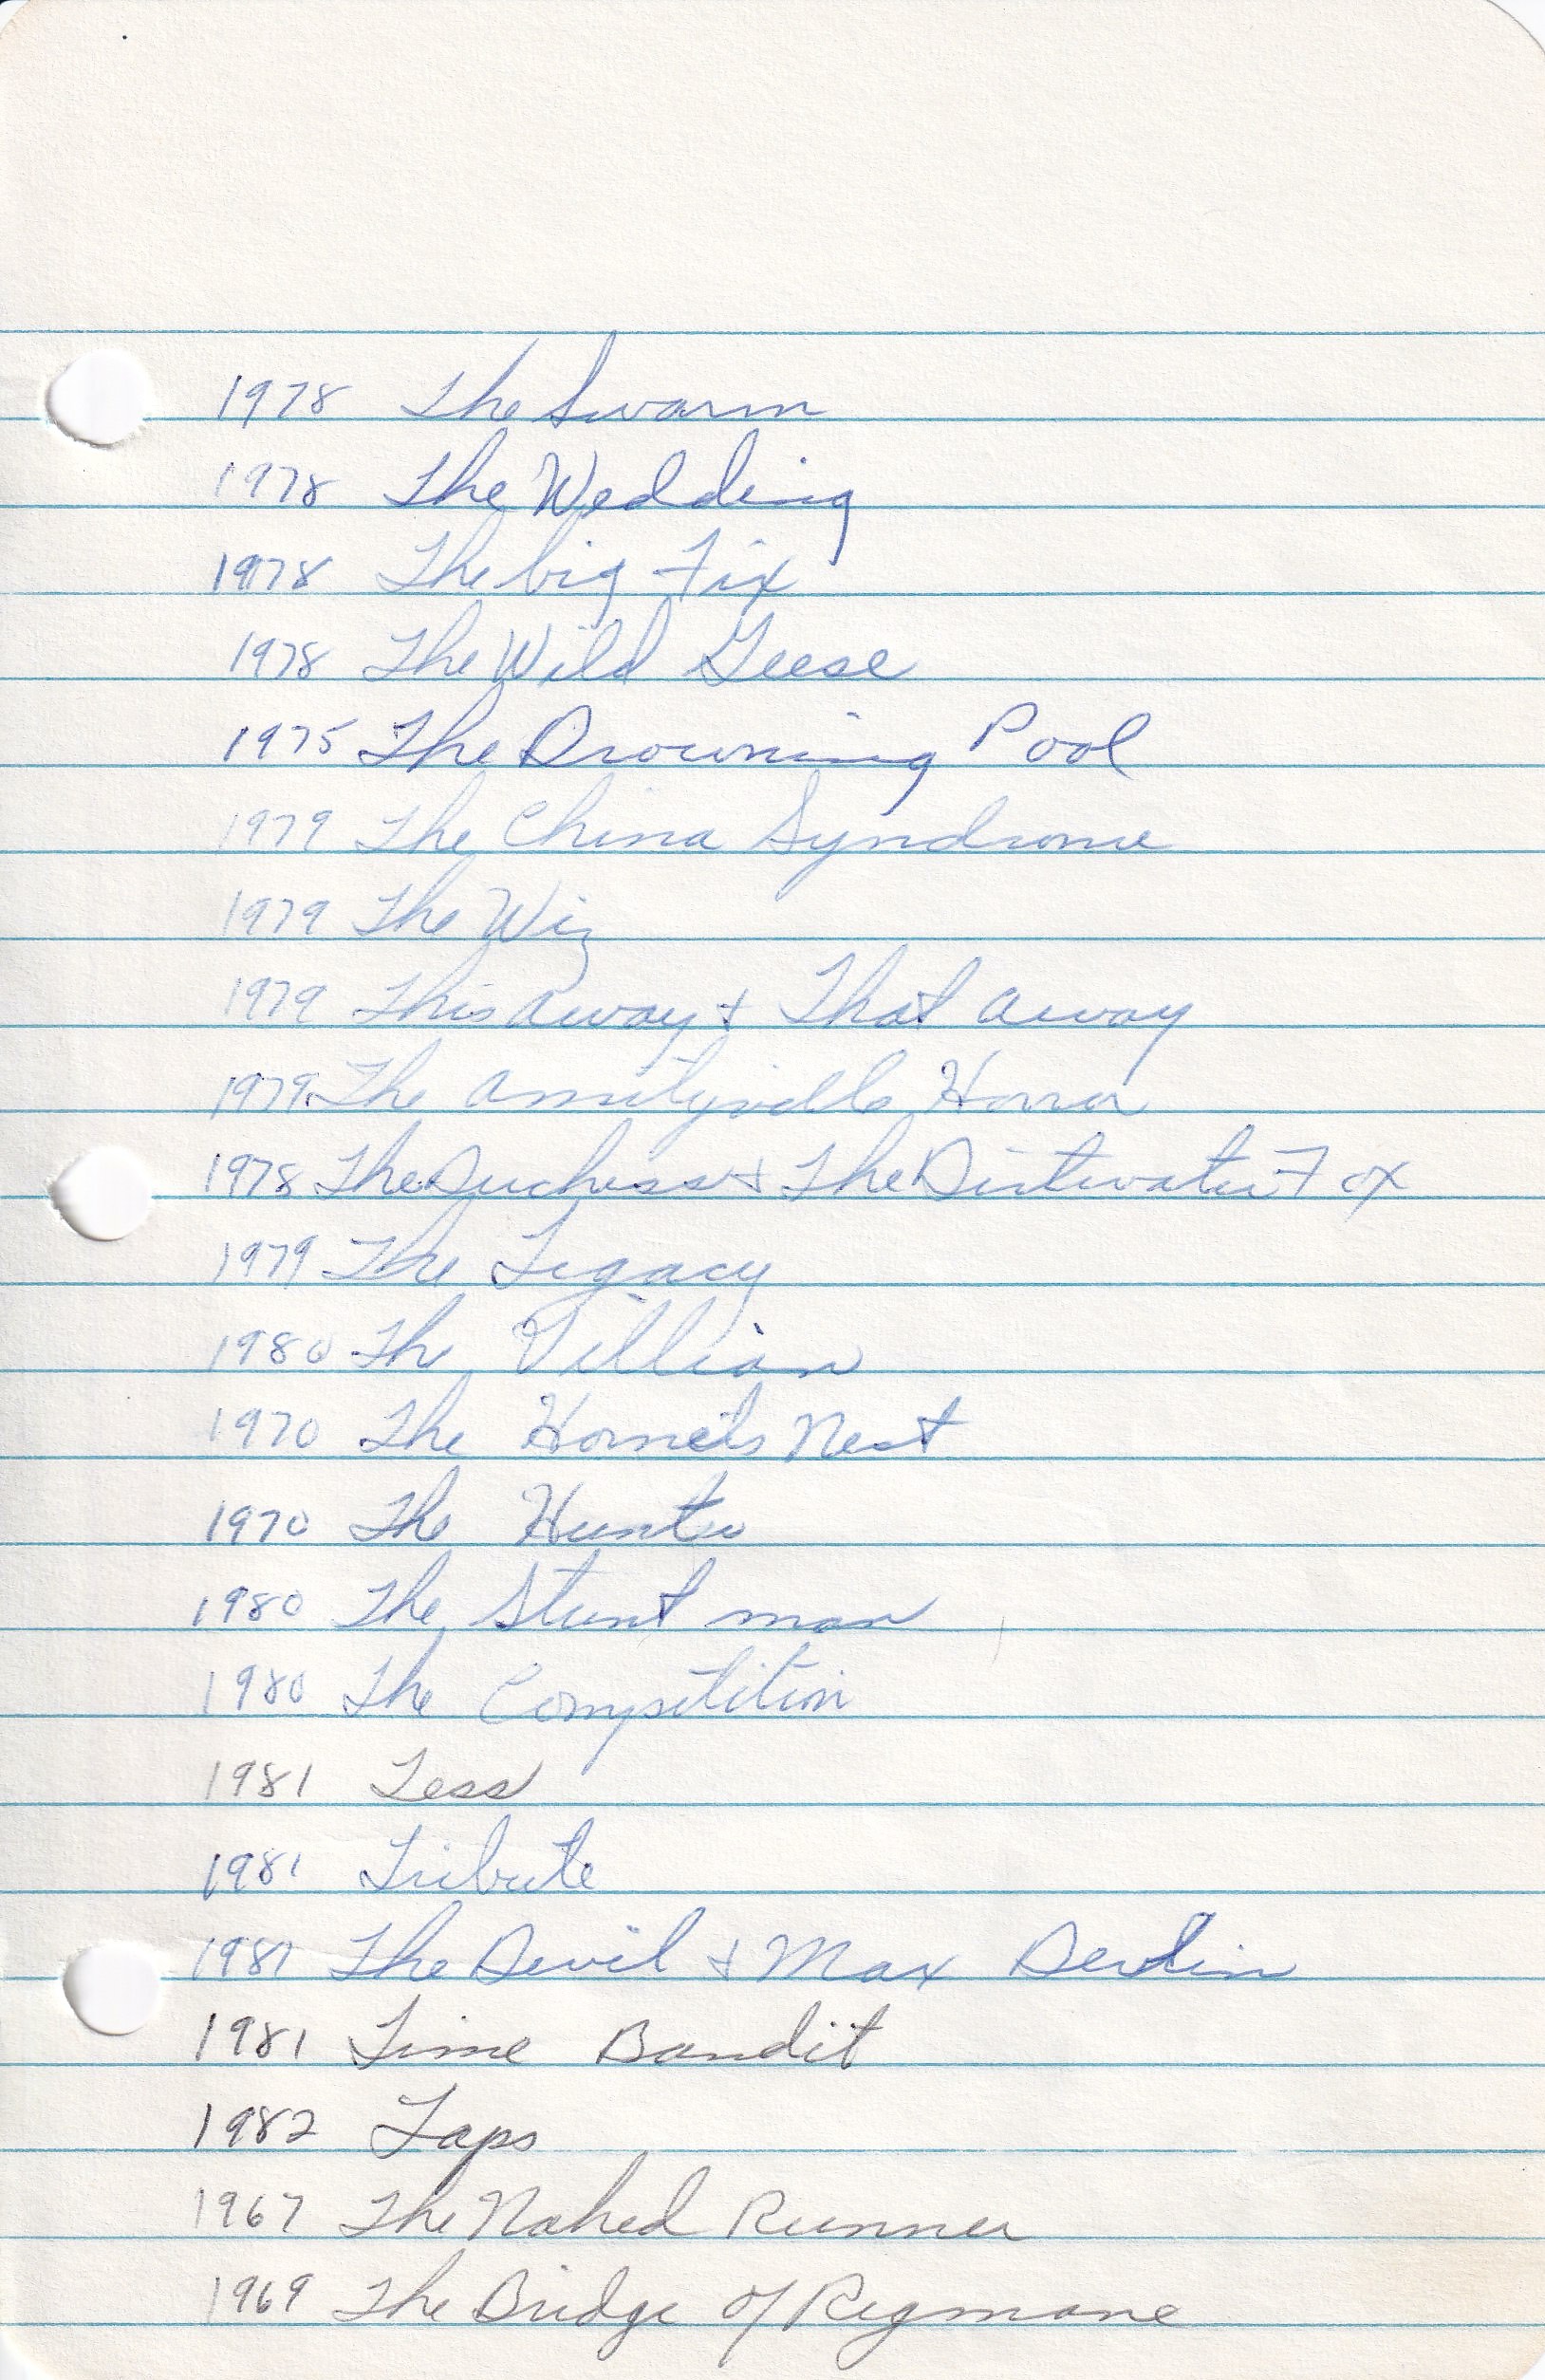 1978 The Swarm
1978 The Wedding
1978 The big Fix
1978 The Wild Geese
1975 The Drowning Pool
1979 The China Syndrome
1979 The Wiz
1979 This Away & That away
1979 The Amityville Horror
1978 The Duchess & The Dirtwater Fox
1979 The Legacy
1980 The Villian
1970 The Hornets Nest
1970 The Hunter
1980 The Stunt man
1980 The Competition
1981 Tess
1981 Tribute
1981 The Devil & Max Devlin
1981 Time Bandit
1982 Taps
1967 The Naked Runner
1969 The Bridge of Regmane